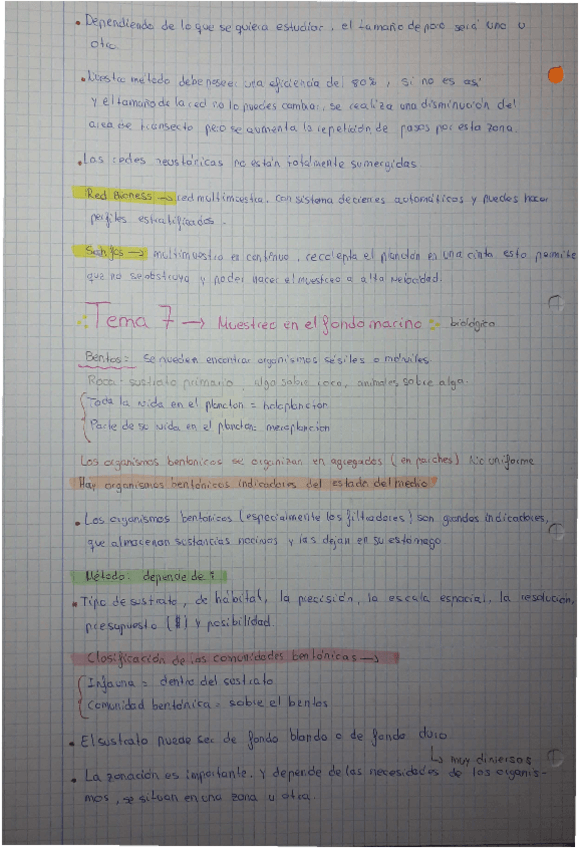 • Dependiendo de lo que se quiera estudiar, el tamaño de poro será uno u
otro.
• Nuestro método debe poseer una eficiencia del 80%, si no es así
y el tamaño de la red no lo puedes cambiar, se realiza una disminución del
area de transecto pero se aumenta la repetición de pasos por esta zona.
• Las redes neustónicas no están totalmente sumergidas
Red Bioness → red multimuestra, con sistema de cierres automáticos y puedes hacer
perfiles estratificados.
→ multimuestra es continuo, recolecta el plancton es una cinta esto permite
que no se obstruya y poder hacer el muestreo a alta velocidad.
Tema 7 → Muestreo en el fondo marino biológico
Bentos: se pueden encontrar organismos sésiles o móviles.
Roca: sustrato primario, algo sobre roca, animales sobre algo.
Toda la vida en el plancton = holoplancton
Parte de su vida en el plancton: meroplancton
Los organismos bentónicos se organizan en agregados (en parches) No uniforme
Hay organismos bentónicos indicadores del estado del medio
• Los organismos bentónicos (especialmente los filtradores) son grandes indicadores,
que almacenan sustancias nocivas y las dejan en su estómago.
Método: depende de:
• Tipo de sustrato, de hábitat, la precisión, la escala espacial, la resolución,
presupuesto ($) y posibilidad.
Clasificación de las comunidades bentónicas →
Infauna = dentro del sustrato
Comunidad bentónica = sobre el bentos
• El sustrato puede ser de fondo blando o de fondo duro
↳ muy diversos
• La zonación es importante. Y depende de las necesidades de los organis-
mos, se sitúan en una zona u otra.